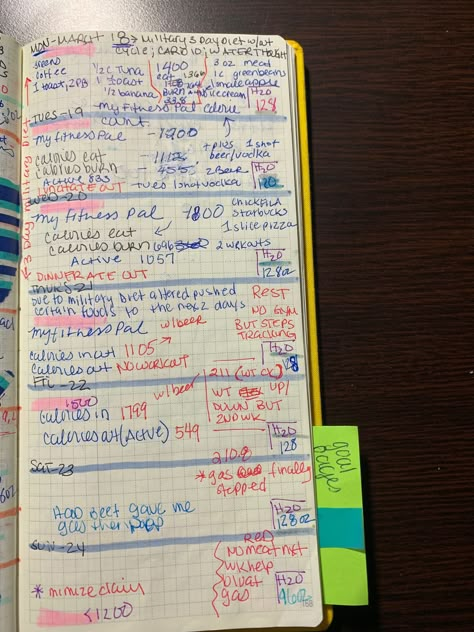 MON-MARCH 18 → Military 3 Day Diet w/wt
cycle; CARDIO; WATER THROUGH
coffee
1 toast, 2PB
1/2 c tuna
1 toast
1/2 banana
1400
eat
BURN
3 oz meat
1c greenbeans
apple
ice cream
H2O
128
TUES-19
my Fitness Pal calorie
count
my fitness Pal -1200
calories eat
calories burn - 455
Active 833
+ plus 1 shot
beer/vodka
2 Beer
1 shot vodka
ATE OUT
H2O
120
WED-20
my fitness Pal 1800
calories eat
calories burn 696
Active 1057
CHICKFILA
Starbucks
1 slice pizza
2 workouts
DINNER ATE OUT
H2O
128oz
3 Day military Diet
THURS-21
Due to military Diet altered pushed
certain foods to the next 2 days
my fitness Pal
w/beer
calories in at 1105
calories out NO WORKOUT
REST
NO GYM
BUT STEPS
TRACKING
H2O
128
FRI-22
1500
w/beer
calories in 1799
calories out (Active) 549
211 (WT CK)
WT UP/
DOWN BUT
2ND WK
H2O
128
SAT-23
210.8
*gas finally
stopped
Had beef gave me
gas then
H2O
128oz
SUN-24
* 
<1200
RED
NO meat nxt
wk help
bloat
gas
H2O
goal
pages